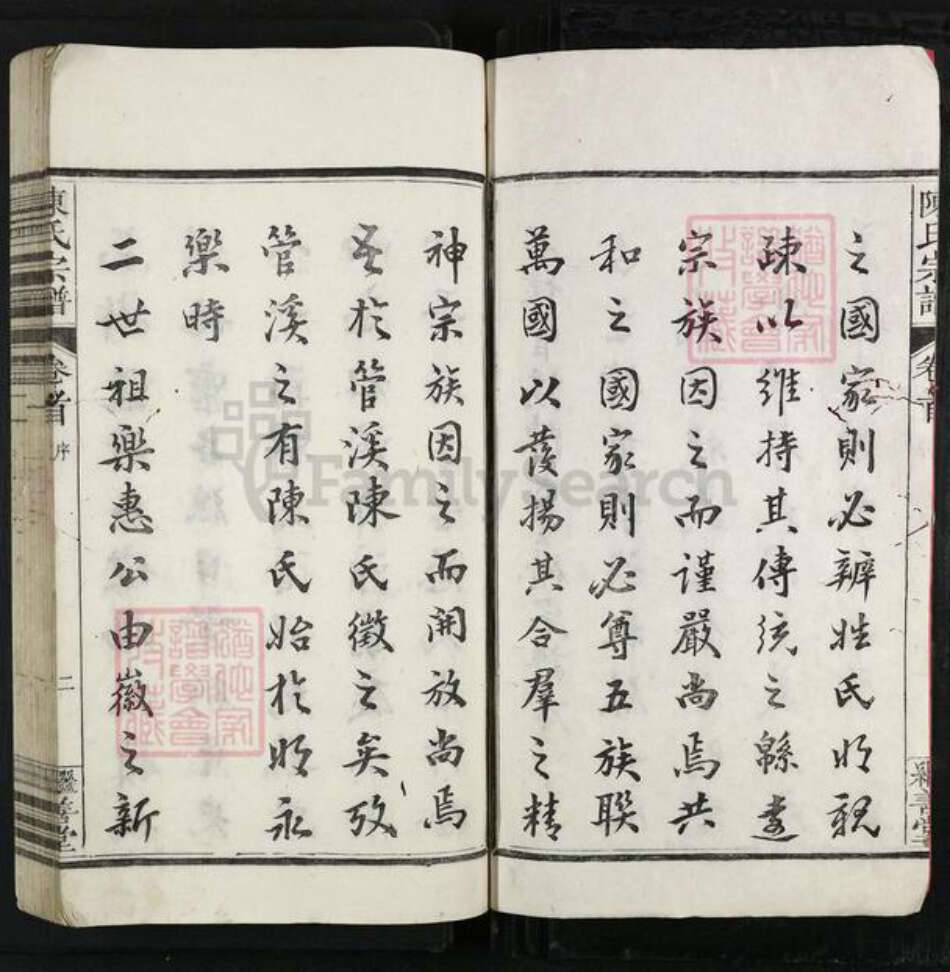 之國家則必辨姓氏明親
疎以維持其傳統之緜遠
宗族因之而謹嚴尚焉共
和之國家則必尊五族聯
萬國以發揚其合羣之精
神宗族因之而開放尚焉
吾於管溪陳氏徵之矣攷
管溪之有陳氏始於明永
樂時
二世祖樂惠公由徽之新
陳氏宗譜 卷首 序 二
陳氏宗譜 卷首
FamilySearch